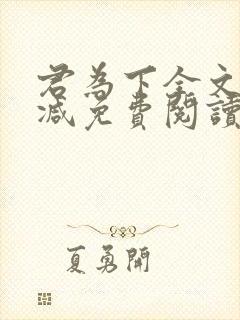 君為下全文
減免費閱讀
夏勇開